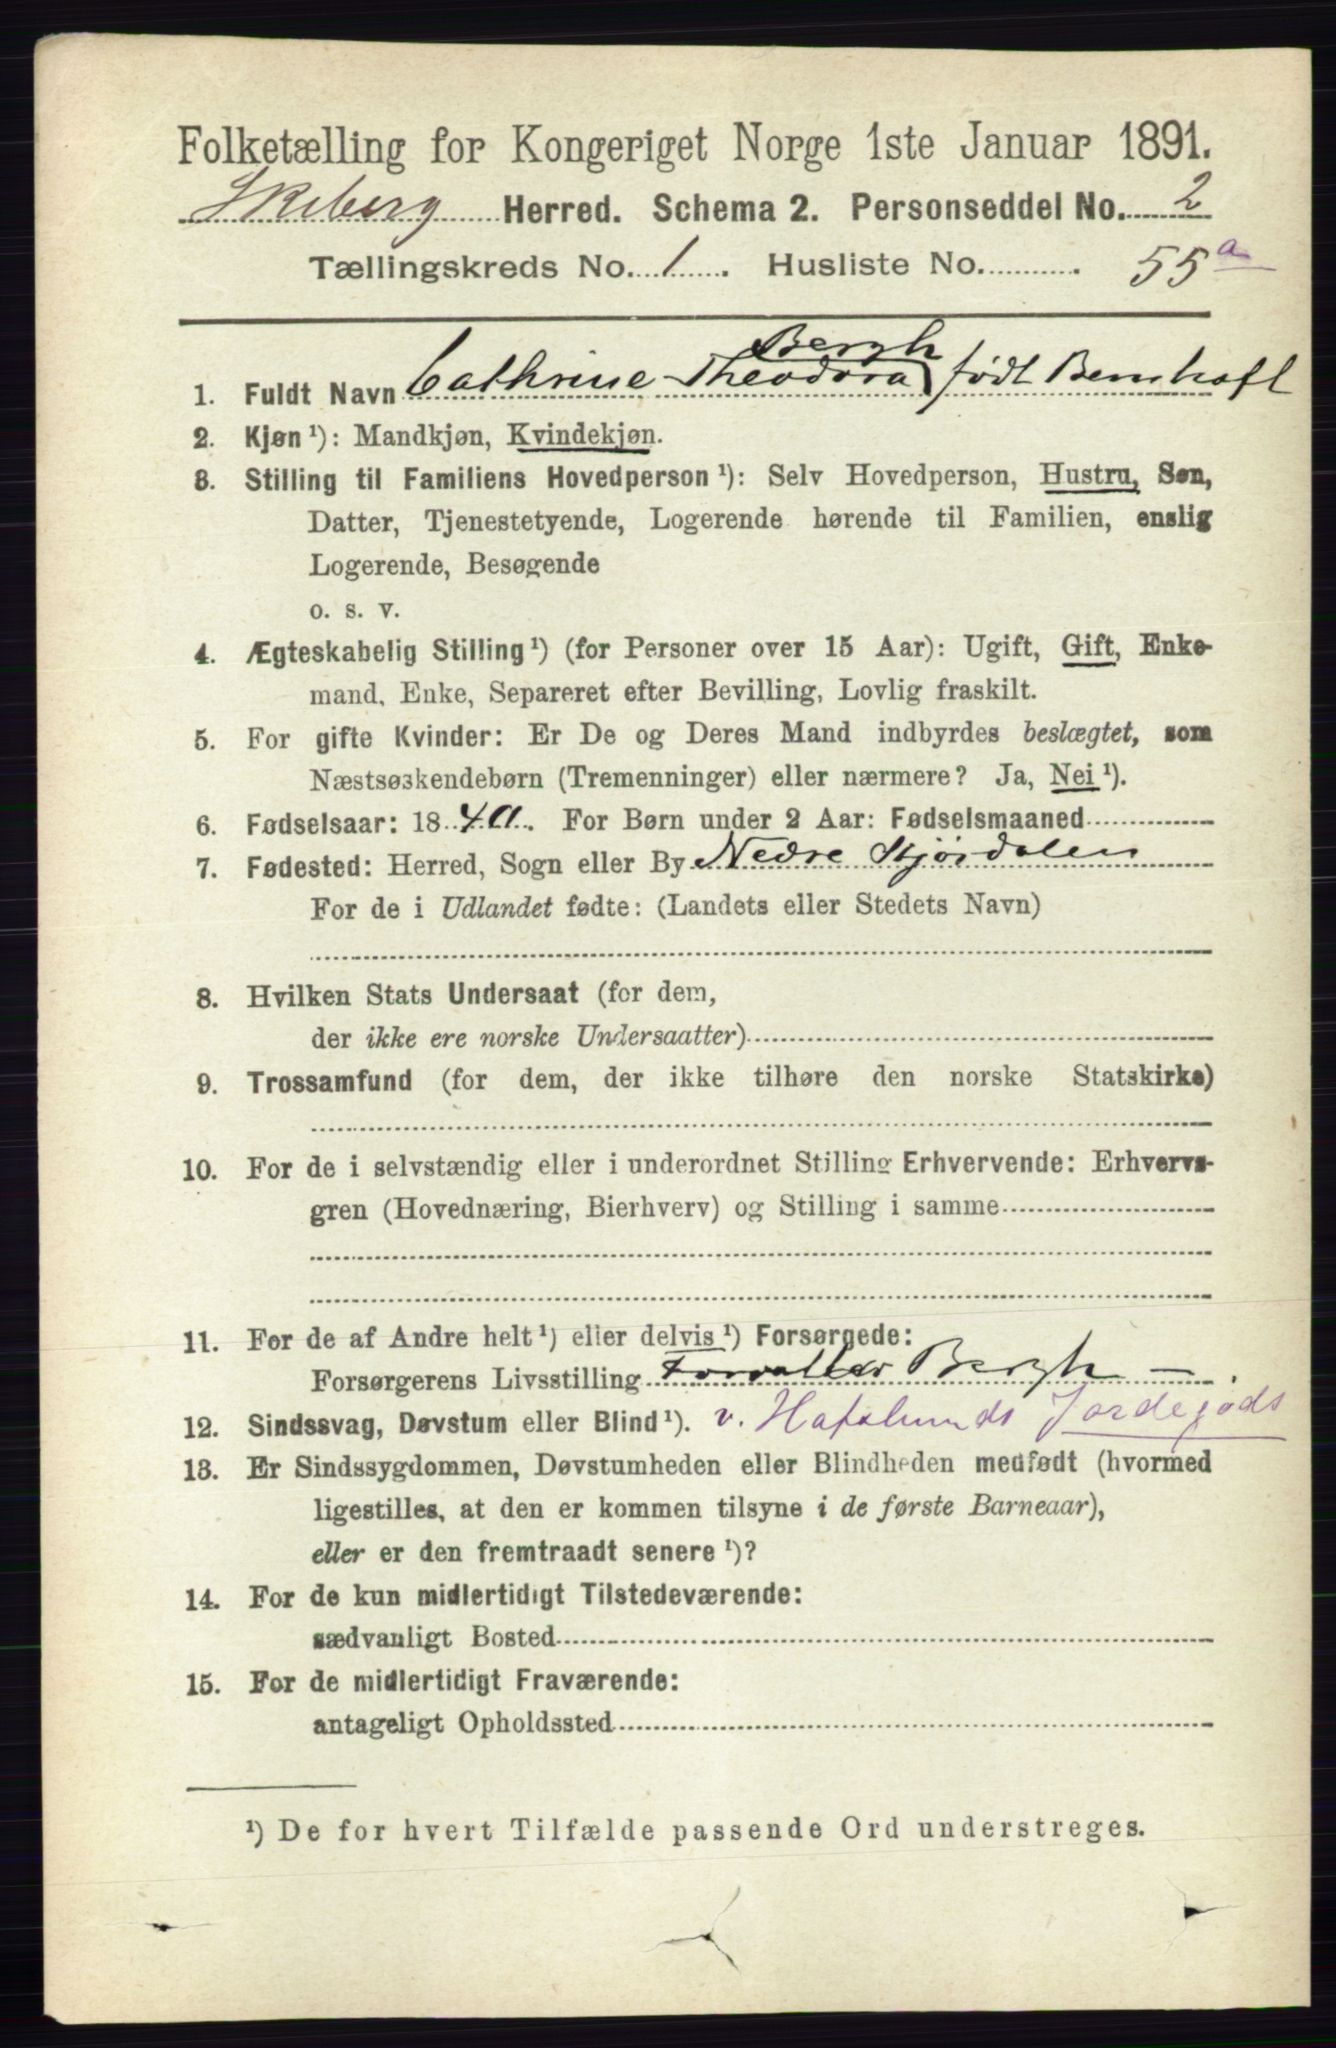 Folketælling for Kongeriget Norge 1ste Januar 1891.
Skeberg Herred. Schema 2. Personseddel No. 2
Tællingskreds No. 1. Husliste No. 55a
Bergh
1. Fuldt Navn Cathrine Theodora født Bernhoft
2. Kjøn ¹): Mandkjøn, Kvindekjøn.
3. Stilling til Familiens Hovedperson ¹): Selv Hovedperson, Hustru, Søn,
Datter, Tjenestetyende, Logerende hørende til Familien, enslig
Logerende, Besøgende
o. s. v.
4. Ægteskabelig Stilling ¹) (for Personer over 15 Aar): Ugift, Gift, Enke-
mand, Enke, Separeret efter Bevilling, Lovlig fraskilt.
5. For gifte Kvinder: Er De og Deres Mand indbyrdes beslægtet, som
Næstsøskendebørn (Tremenninger) eller nærmere? Ja, Nei ¹).
6. Fødselsaar: 1840. For Børn under 2 Aar: Fødselsmaaned
7. Fødested: Herred, Sogn eller By Nedre Stjørdalen
For de i Udlandet fødte: (Landets eller Stedets Navn)
8. Hvilken Stats Undersaat (for dem,
der ikke ere norske Undersaatter)
9. Trossamfund (for dem, der ikke tilhøre den norske Statskirke)
10. For de i selvstændig eller i underordnet Stilling Erhvervende: Erhvervs-
gren (Hovednæring, Bierhverv) og Stilling i samme
11. For de af Andre helt ¹) eller delvis ¹) Forsørgede:
Forsørgerens Livsstilling Forvalter Bergh —
12. Sindssvag, Døvstum eller Blind ¹). v. Hafslunds Jordegods
13. Er Sindssygdommen, Døvstumheden eller Blindheden medfødt (hvormed
ligestilles, at den er kommen tilsyne i de første Barneaar),
eller er den fremtraadt senere ¹)?
14. For de kun midlertidigt Tilstedeværende:
sædvanligt Bosted
15. For de midlertidigt Fraværende:
antageligt Opholdssted
¹) De for hvert Tilfælde passende Ord understreges.